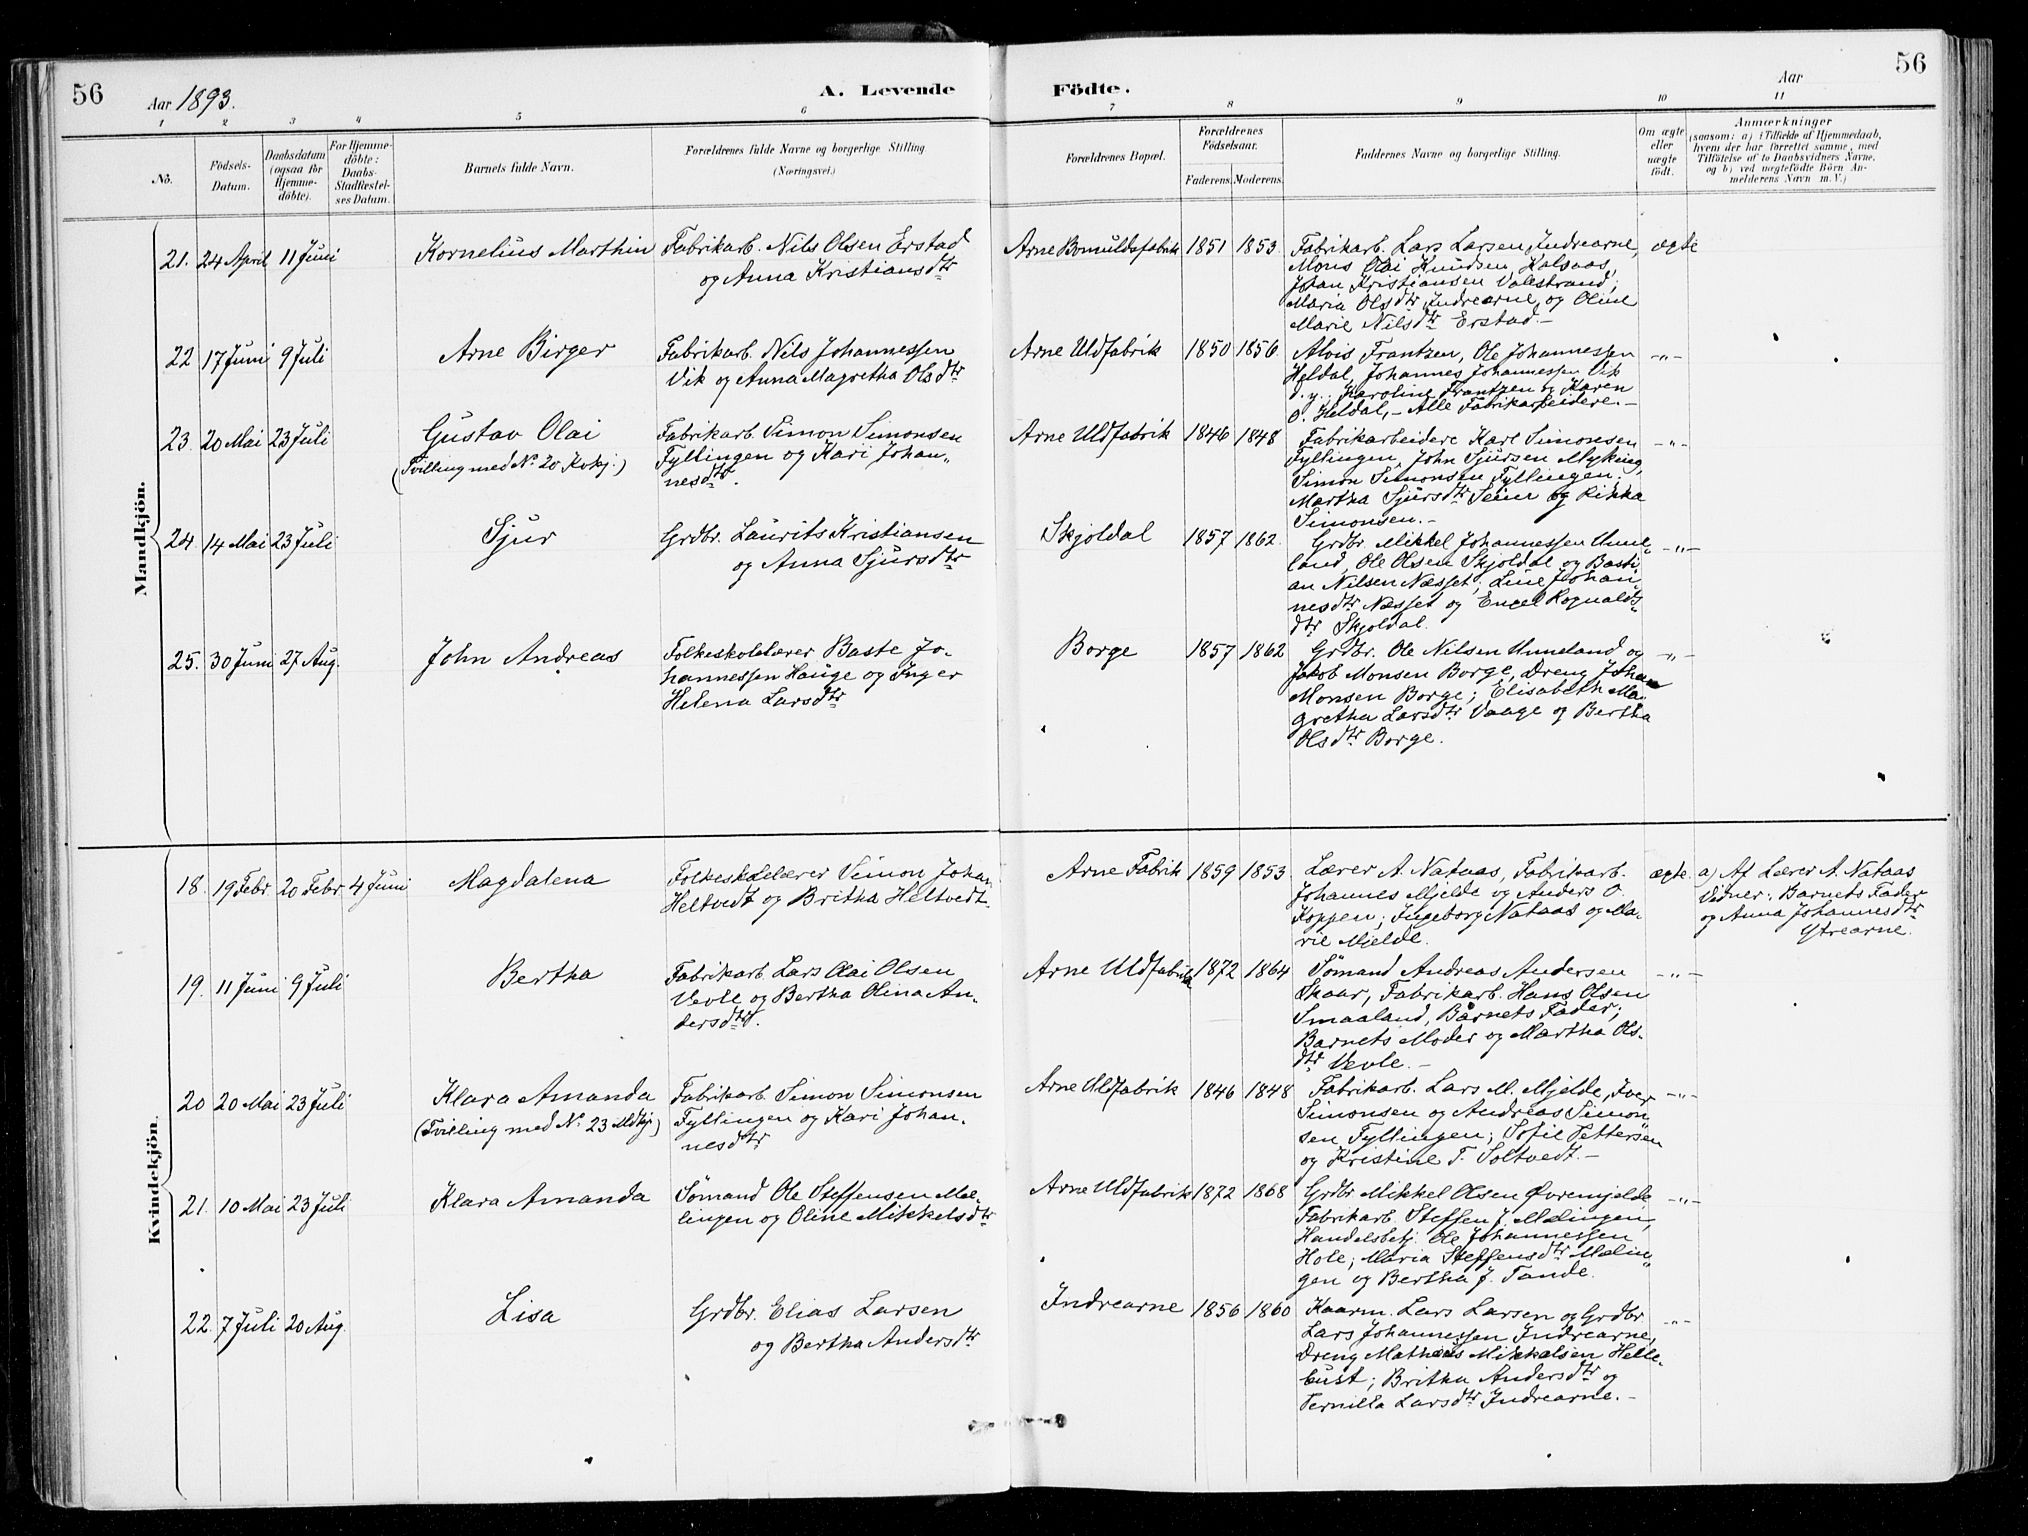 56
Aar 1893.
A. Levende
Födte.
Aar
56
1 2 3 4 5 6 7 8 9 10 11
No.
Födsels-
Datum.
Daabsdatum
(ogsaa for
Hjemme-
döbte).
For Hjemme-
döbte:
Daabs-
Stadfæstel-
ses Datum.
Barnets fulde Navn.
Forældrenes fulde Navne og borgerlige Stilling
(Næringsvei.)
Forældrenes Bopæl.
Forældrenes
Födselsaar.
Faderens. Moderens.
Faddernes Navne og borgerlige Stilling.
Om ægte
eller
uægte
födt.
Anmærkninger
(saasom: a) i Tilfælde af Hjemmedaab,
hvem der har forrettet samme, med
Tilföielse af to Daabsvidners Navne,
og b) ved uægtefödte Börn An-
melderens Navn m. V.)
Mandkjön.
21. 24 April 11 Juni
Kornelius Marthin
Fabrikarb. Nils Olsen Erstad
og Anna Kristiansdtr
Arne Bomuldsfabrik 1851 1853
Fabrikarb. Lars Larsen Indrearne,
Mons Olai Knudsen Kalsaas,
Johan Kristiansen Valestrand;
Maria Olsdtr Indrearne og Oline
Marie Nilsdtr Erstad.-
ægte
22 17 Juni 9 Juli
Arne Birger
Fabrikarb. Nils Johannessen
Vik og Anna Magretha Olsdtr
Arne Uldfabrik 1850 1856.
Alois Frantzen, Ole Johannessen
Heldal, Johannes Johannessen Vik
d. y.; Karoline Frantzen og Karen
O. Heldal, - Alle Fabrikarbeidere.-
-"-
23. 20 Mai 23 Juli
Gustav Olai
(Tvilling med No. 20 Kvkj.)
Fabrikarb. Simon Simonsen
Fyllingen og Kari Johan-
nesdtr.
Arne Uldfabrik 1846 1848
Fabrikarbeidere Karl Simonsen
Fyllingen, John Sjursen Myking,
Simon Simonsen Fyllingen;
Martha Sjursdtr Seim og Rikka
Simonsen.-
-"-
24. 14 Mai 23 Juli
Sjur
Grdbr. Laurits Kristiansen
og Anna Sjursdtr
Skjoldal 1857 1862.
Grdbr. Mikkel Johannessen Unne-
land, Ole Olsen Skjoldal og Basti-
an Nilsen Næsset; Line Johan-
nesdtr Næsset og Engel Rognalds-
dtr Skjoldal.
-"-
25. 30 Juni 27 Aug.
John Andreas
Folkeskolelærer Baste Jo-
hannessen Hauge og Inger
Helena Larsdtr
Borge 1857 1862
Grdbr. Ole Nilsen Unneland og
Jakob Monsen Borge, Dreng Johan
Monsen Borge; Elisabeth Ma-
gretha Larsdtr Vaage og Bertha
Olsdtr Borge.
-"-
Kvindekjön.
18. 19 Febr. 20 Febr 4 Juni
Magdalena
Folkeskolelærer Simon Johan
Heltvedt og Britha Heltvedt.
Arne Fabrik 1859 1853.
Lærer A. Nataas, Fabrikarb.
Johannes Mjelde og Anders O.
Koppen; Ingeborg Nataas og Ma-
rie Mjelde.
ægte.
a) Af Lærer A. Nataas
Vidner: Barnets Fader
og Anna Johannesdtr
Ytrearne.
19. 11 Juni 9 Juli
Bertha
Fabrikarb. Lars Olai Olsen
Vevle og Bertha Olina An-
dersdtr.
Arne Uldfabrik 1872 1864
Sömand Andreas Andersen
Skaar, Fabrikarb. Hans Olsen
Smaaland, Barnets Fader;
Barnets Moder og Martha Ols-
dtr Vevle.-
-"-
20 20 Mai 23 Juli
Klara Amanda
(Tvilling med No. 23 Mdkj.)
Fabrikarb. Simon Simonsen
Fyllingen og Kari Johan-
nesdtr
Arne Uldfabrik 1846 1848
Fabrikarb. Lars M. Mjelde, Iver
Simonsen og Andreas Simon-
sen Fyllingen; Sofie Pettersen
og Kristine T. Soltvedt.-
-"-
21. 10 Mai 23 Juli
Klara Amanda
Sömand Ole Steffensen Mæ-
lingen og Oline Mikkelsdtr
Arne Uldfabrik 1872 1868
Grdbr. Mikkel Olsen Øvremjelde,
Fabrikarb. Steffen J. Mælingen,
Handelsbetj. Ole Johannessen
Hole; Maria Steffensdtr Mælin-
gen og Bertha J. Tande.
-"-
22. 7 Juli 20 Aug.
Lisa
Grdbr. Elias Larsen
og Bertha Andersdtr
Indrearne 1856 1860
Kaarm. Lars Larsen og Grdbr.
Lars Johannessen Indrearne,
Dreng Mathias Mikkalsen Helle-
bust; Britha Andersdtr og
Pernilla Larsdtr Indrearne.-
-"-